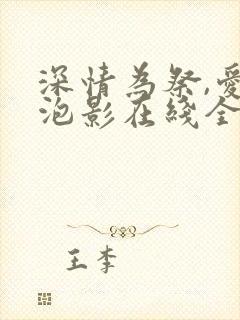 深情為祭,愛
泡影在綫全
王李